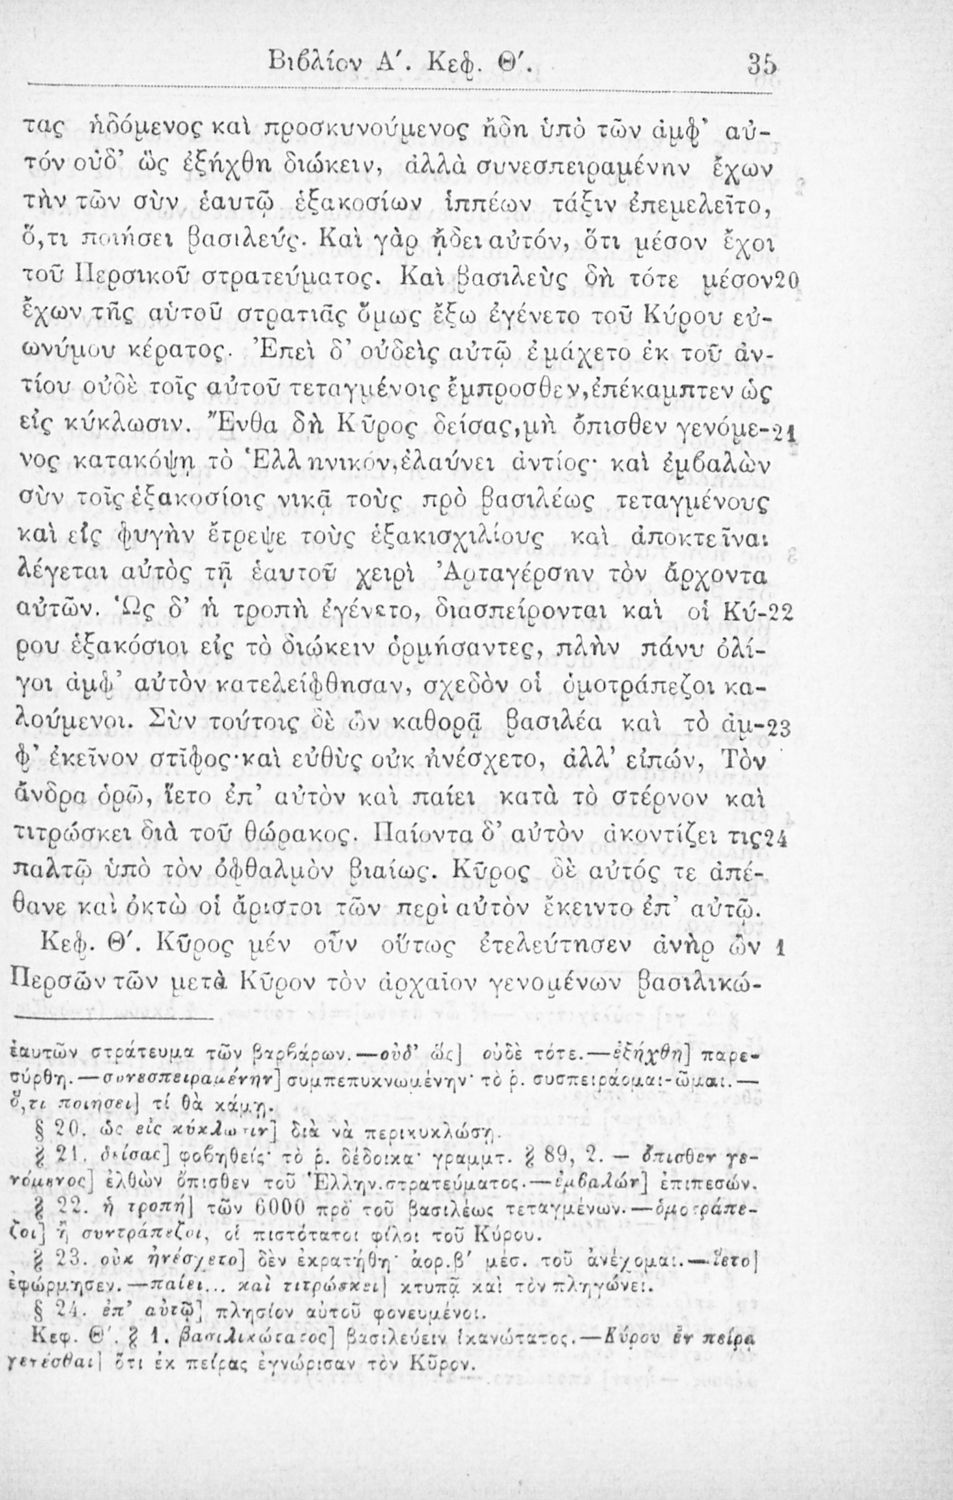 Βιβλίον Α΄. Κεφ. Θ΄. 35
τας ἡδόμενος καὶ προσκυνούμενος ἤδη ὑπὸ τῶν ἀμφ’ αὐ-
τόν οὐδ’ ὣς ἐξήχθη διώκειν, ἀλλὰ συνεσπειραμένην ἔχων
τὴν τῶν σὺν ἑαυτῷ ἑξακοσίων ἱππέων τάξιν ἐπεμελεῖτο,
ὅ,τι ποιήσει βασιλεύς. Καὶ γὰρ ᾔδει αὐτόν, ὅτι μέσον ἔχοι
τοῦ Περσικοῦ στρατεύματος. Καὶ βασιλεὺς δὴ τότε μέσον 20
ἔχων τῆς αὑτοῦ στρατιᾶς ὅμως ἔξω ἐγένετο τοῦ Κύρου εὐ-
ωνύμου κέρατος. Ἐπεὶ δ’ οὐδεὶς αὐτῷ ἐμάχετο ἐκ τοῦ ἀν-
τίου οὐδὲ τοῖς αὐτοῦ τεταγμένοις ἔμπροσθεν, ἐπέκαμπτεν ὡς
εἰς κύκλωσιν. Ἔνθα δὴ Κῦρος δείσας, μὴ ὄπισθεν γενόμε- 21
νος κατακόψῃ τὸ Ἑλληνικόν, ἐλαύνει ἀντίος· καὶ ἐμβαλὼν
σὺν τοῖς ἑξακοσίοις νικᾷ τοὺς πρὸ βασιλέως τεταγμένους
καὶ εἰς φυγὴν ἔτρεψε τοὺς ἑξακισχιλίους καὶ ἀποκτεῖναι
λέγεται αὐτὸς τῇ ἑαυτοῦ χειρὶ Ἀρταγέρσην τὸν ἄρχοντα
αὐτῶν. Ὡς δ’ ἡ τροπὴ ἐγένετο, διασπείρονται καὶ οἱ Κύ- 22
ρου ἑξακόσιοι εἰς τὸ διώκειν ὁρμήσαντες, πλὴν πάνυ ὀλί-
γοι ἀμφ’ αὐτὸν κατελείφθησαν, σχεδὸν οἱ ὁμοτράπεζοι κα-
λούμενοι. Σὺν τούτοις δὲ ὢν καθορᾷ βασιλέα καὶ τὸ ἀμ- 23
φ’ ἐκεῖνον στῖφος· καὶ εὐθὺς οὐκ ἠνέσχετο, ἀλλ’ εἰπών, Τὸν
ἄνδρα ὁρῶ, ἵετο ἐπ’ αὐτὸν καὶ παίει κατὰ τὸ στέρνον καὶ
τιτρώσκει διὰ τοῦ θώρακος. Παίοντα δ’ αὐτὸν ἀκοντίζει τις 24
παλτῷ ὑπὸ τὸν ὀφθαλμὸν βιαίως. Κῦρος δὲ αὐτός τε ἀπέ-
θανε καὶ ὀκτὼ οἱ ἄριστοι τῶν περὶ αὐτὸν ἔκειντο ἐπ’ αὐτῷ.
Κεφ. Θ΄. Κῦρος μὲν οὖν οὕτως ἐτελεύτησεν ἀνὴρ ὢν 1
Περσῶν τῶν μετὰ Κῦρον τὸν ἀρχαῖον γενομένων βασιλικώ-
ἑαυτῶν στράτευμα τῶν βαρβάρων.—οὐδ’ ὣς] οὐδὲ τότε.—ἐξήχθη] παρε-
σύρθη.—συνεσπειραμένην] συμπεπυκνωμένην· τὸ ῥ. συσπειράομαι-ῶμαι.—
ὅ,τι ποιήσει] τί θὰ κάμῃ.
§ 20. ὡς εἰς κύκλωσιν] διὰ νὰ περικυκλώσῃ.
§ 21. δείσας] φοβηθείς· τὸ ῥ. δέδοικα· γραμμτ. § 89, 2. — ὄπισθεν γε-
νόμενος] ἐλθὼν ὄπισθεν τοῦ Ἑλλην. στρατεύματος.—ἐμβαλών] ἐπιπεσών.
§ 22. ἡ τροπή] τῶν 6000 πρὸ τοῦ βασιλέως τεταγμένων.—ὁμοτράπε-
ζοι] ἢ συντράπεζοι, οἱ πιστότατοι φίλοι τοῦ Κύρου.
§ 23. οὐκ ἠνέσχετο] δὲν ἐκρατήθη· ἀορ. β΄ μέσ. τοῦ ἀνέχομαι.—ἵετο]
ἐφώρμησεν.—παίει... καὶ τιτρώσκει] κτυπᾷ καὶ τὸν πληγώνει.
§ 24. ἐπ’ αὐτῷ] πλησίον αὐτοῦ φονευμένοι.
Κεφ. Θ΄. § 1. βασιλικώτατος] βασιλεύειν ἱκανώτατος.—Κύρου ἐν πείρᾳ
γενέσθαι] ὅτι ἐκ πείρας ἐγνώρισαν τὸν Κῦρον.